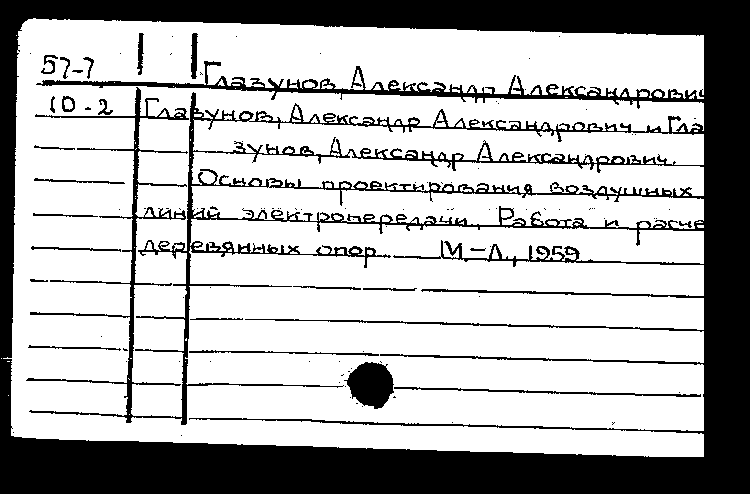 57-7 Глазунов, Александр Александрович
10-2 Глазунов, Александр Александрович и Гла
зунов, Александр Александрович.
Основы проектирования воздушных
линий электропередачи. Работа и расче
деревянных опор. М.-Л., 1959.